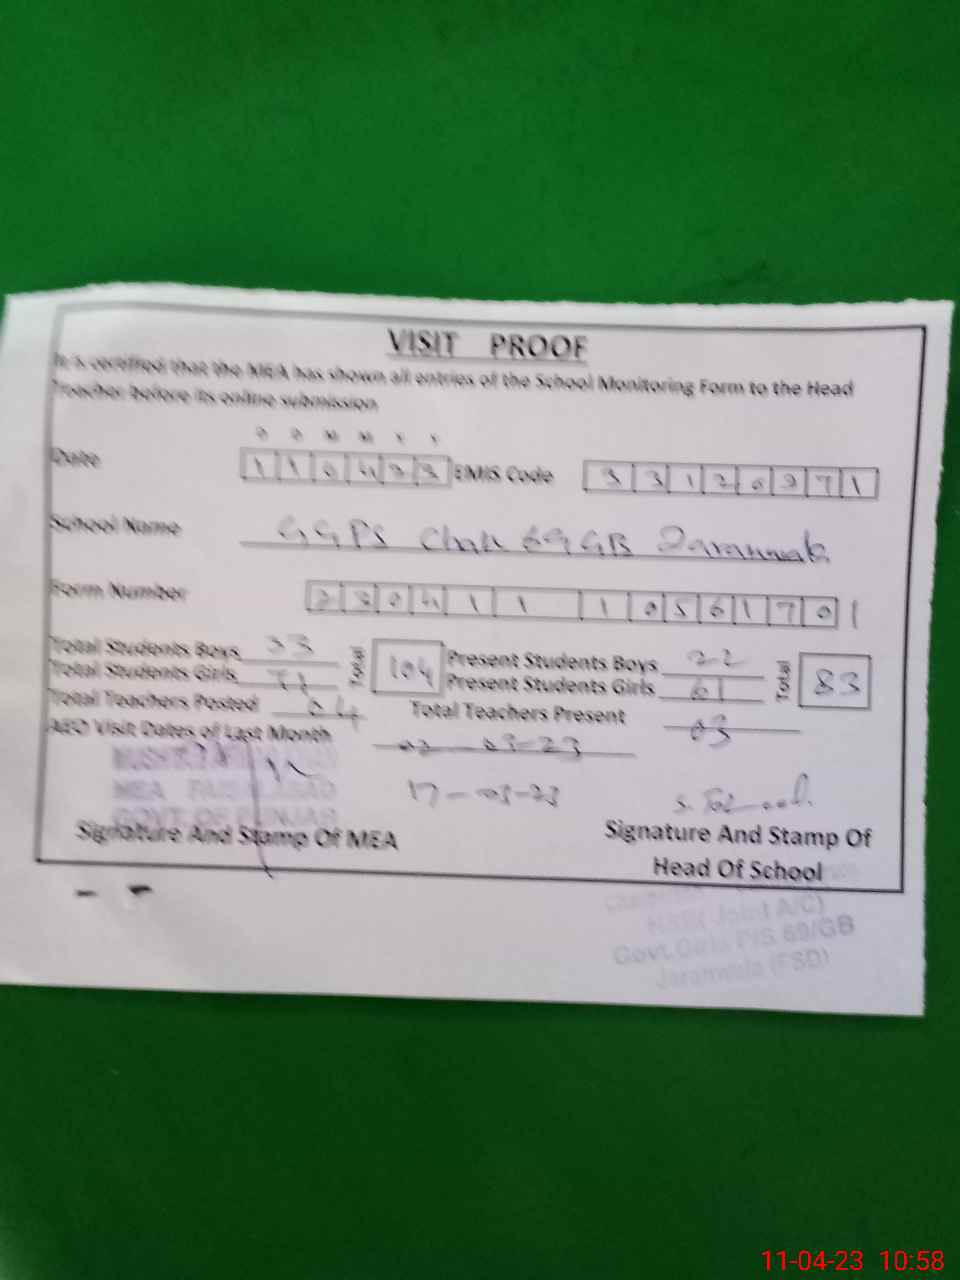 VISIT PROOF
It is certified that the MEA has shown all entries of the School Monitoring Form to the Head
Teacher before its online submission
D D M M Y Y
Date 110423 EMIS Code 33126971
School Name GGPS Chak 69 GB Jaranwala
Form Number 2304 1 1 1056170 1
Total Students Boys 33 Total 104 Present Students Boys 22 Total 83
Total Students Girls 71 Present Students Girls 61
Total Teachers Posted 04 Total Teachers Present 03
AEO Visit Dates of Last Month 02-03-23
17-03-23
MEA FAISALABAD
GOVT. OF PUNJAB
Signature And Stamp Of MEA
Signature And Stamp Of
Head Of School
(Joint A/C)
Govt. Girls P/S 69/GB
Jaranwala (FSD)
11-04-23 10:58